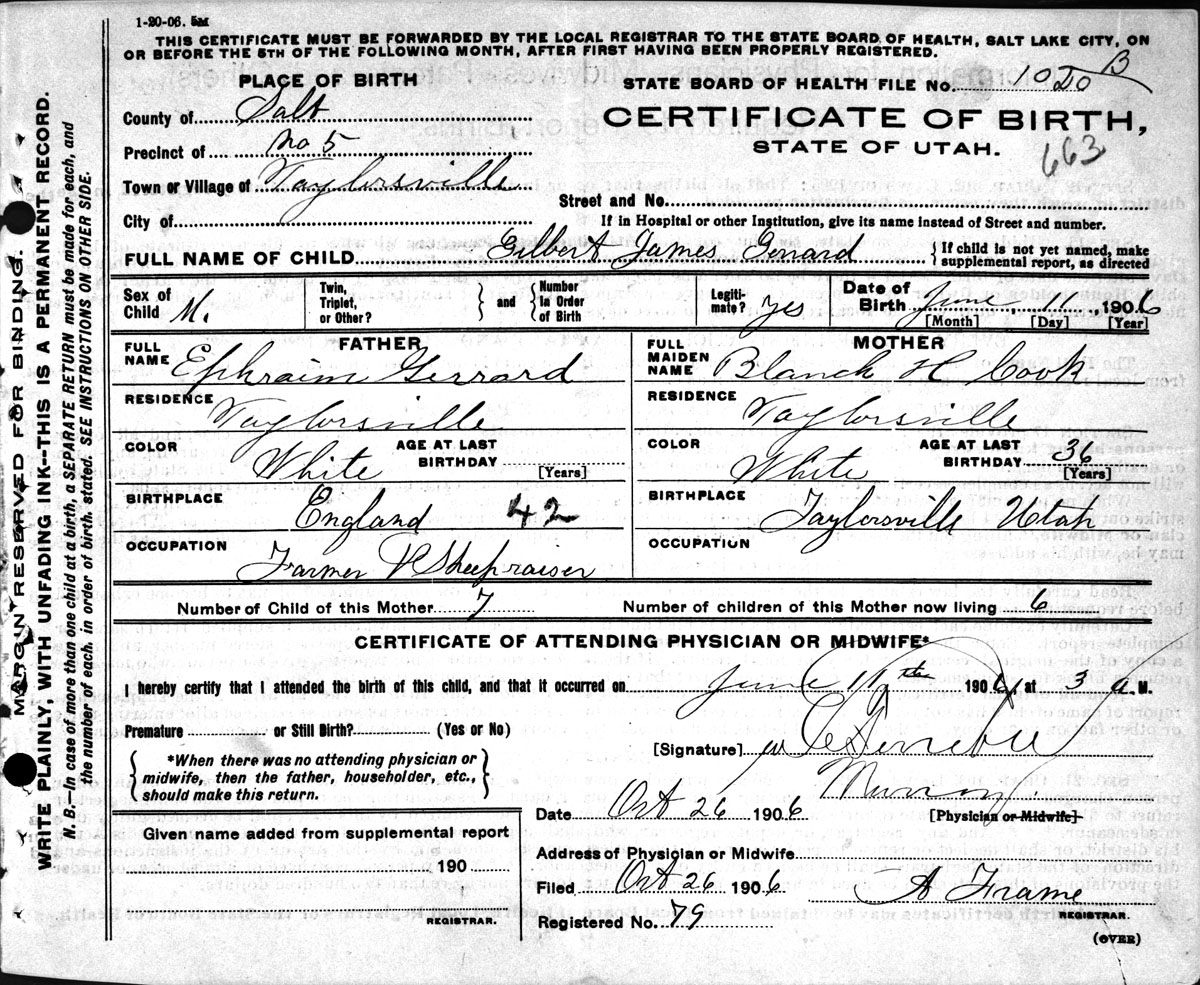 1-20-06. 5M
THIS CERTIFICATE MUST BE FORWARDED BY THE LOCAL REGISTRAR TO THE STATE BOARD OF HEALTH, SALT LAKE CITY, ON
OR BEFORE THE 5TH OF THE FOLLOWING MONTH, AFTER FIRST HAVING BEEN PROPERLY REGISTERED.
PLACE OF BIRTH
STATE BOARD OF HEALTH FILE No. 10 B
County of Salt
CERTIFICATE OF BIRTH,
Precinct of No 5
STATE OF UTAH.
663
Town or Village of Taylorsville
Street and No.
City of
If in Hospital or other Institution, give its name instead of Street and number.
FULL NAME OF CHILD Gilbert James Gerrard { If child is not yet named, make supplemental report, as directed
Sex of Child M. Twin, Triplet, or Other? } and { Number In Order of Birth Legiti-mate? Yes Date of Birth June 11, 1906
[Month] [Day] [Year]
FATHER
MOTHER
FULL NAME Ephraim Gerrard
FULL MAIDEN NAME Blanch H Cook
RESIDENCE Taylorsville
RESIDENCE Taylorsville
COLOR White AGE AT LAST BIRTHDAY [Years]
COLOR White AGE AT LAST BIRTHDAY 36 [Years]
BIRTHPLACE England 42
BIRTHPLACE Taylorsville Utah
OCCUPATION Farmer & Sheepraiser
OCCUPATION
Number of Child of this Mother 7 Number of children of this Mother now living 6
CERTIFICATE OF ATTENDING PHYSICIAN OR MIDWIFE*
I hereby certify that I attended the birth of this child, and that it occurred on June 11th 1906, at 3 a. M.
Premature or Still Birth? (Yes or No)
[Signature]
{ *When there was no attending physician or
midwife, then the father, householder, etc.,
should make this return. }
Murray.
Date Oct 26 1906 [Physician or Midwife]
Given name added from supplemental report
190
Address of Physician or Midwife
Filed Oct 26 1906 A Frame
REGISTRAR.
REGISTRAR.
Registered No. 79
(OVER)
MARGIN RESERVED FOR BINDING.
WRITE PLAINLY, WITH UNFADING INK--THIS IS A PERMANENT RECORD.
N. B.—In case of more than one child at a birth, a SEPARATE RETURN must be made for each, and
the number of each, in order of birth, stated. SEE INSTRUCTIONS ON OTHER SIDE.